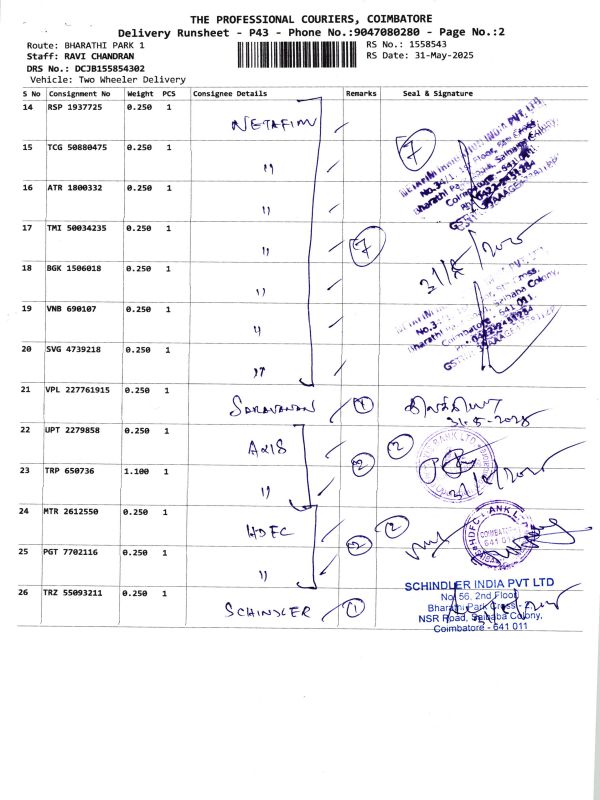 THE PROFESSIONAL COURIERS, COIMBATORE
Delivery Runsheet - P43 - Phone No.:9047080280 - Page No.:2
Route: BHARATHI PARK 1
RS No.: 1558543
Staff: RAVI CHANDRAN
RS Date: 31-May-2025
DRS No.: DCJB155854302
Vehicle: Two Wheeler Delivery
S No Consignment No Weight PCS Consignee Details Remarks Seal & Signature
14 RSP 1937725 0.250 1 NETAFIM
15 TCG 50880475 0.250 1 " 7
16 ATR 1800332 0.250 1 "
17 TMI 50034235 0.250 1 " 7
18 BGK 1506018 0.250 1 "
19 VNB 690107 0.250 1 "
20 SVG 4739218 0.250 1 "
21 VPL 227761915 0.250 1 SARAVANAN 1
31-5-2025
22 UPT 2279858 0.250 1 AXIS 2
23 TRP 650736 1.100 1 " 2
24 MTR 2612550 0.250 1 HDFC 2
25 PGT 7702116 0.250 1 " 2
26 TRZ 55093211 0.250 1 SCHINDLER 1
SCHINDLER INDIA PVT LTD
No. 56, 2nd Floor
Bharathi Park Cross - 2,
NSR Road, Saibaba Colony,
Coimbatore - 641 011